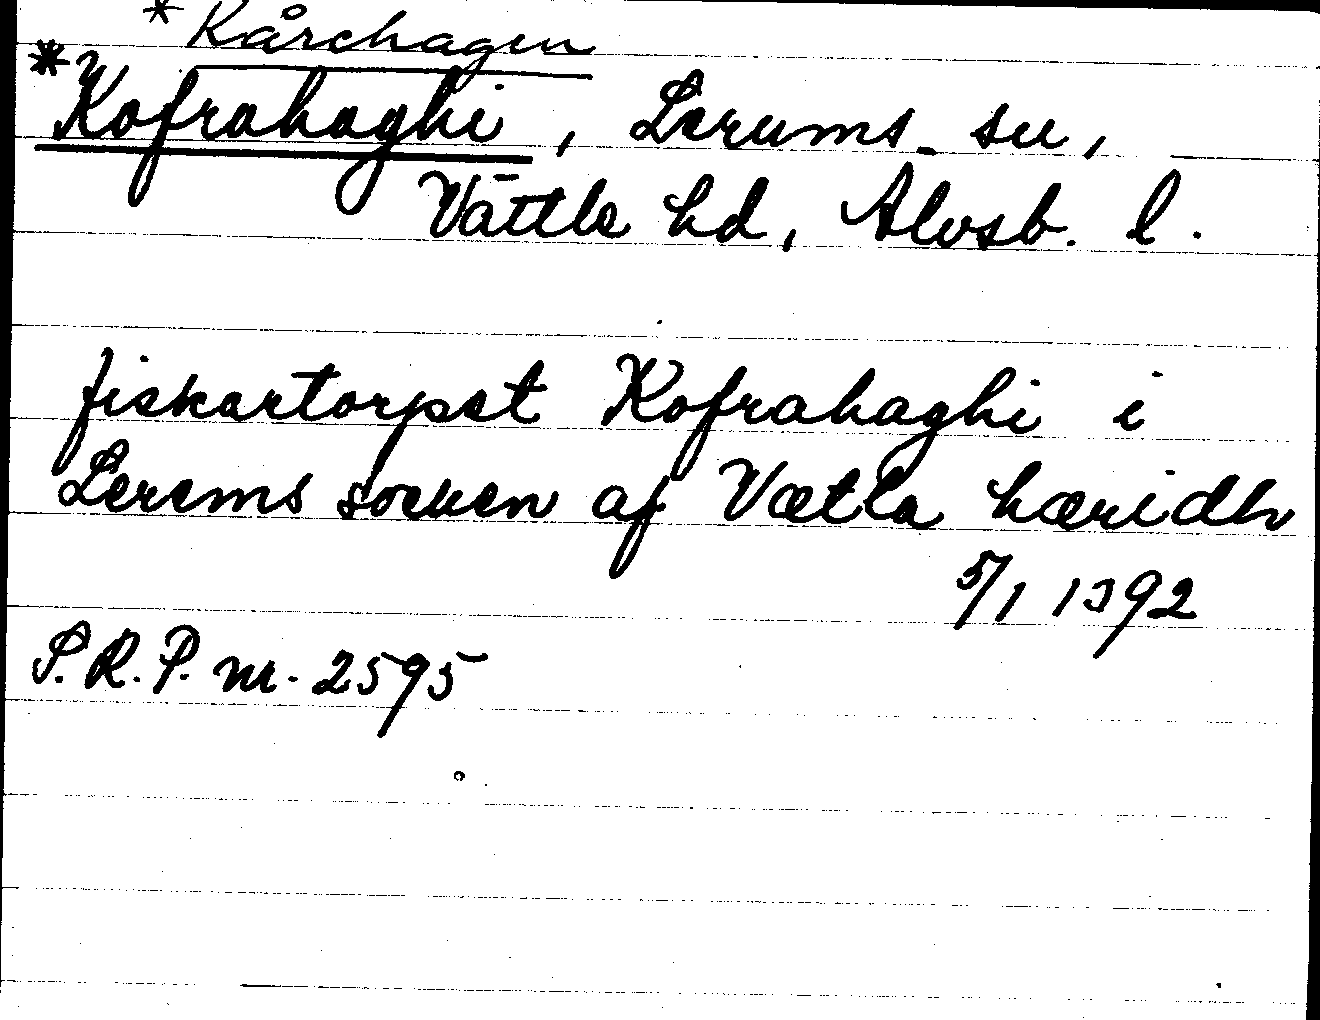 * Kårehagen
*Kofrahaghi, Lerums sn,
Vättle hd, Älvsb. l.
fiskartorpet Kofrahaghi i
Lerems socken af Vætla hæridh
5/1 1392
S.R.P. nr. 2595